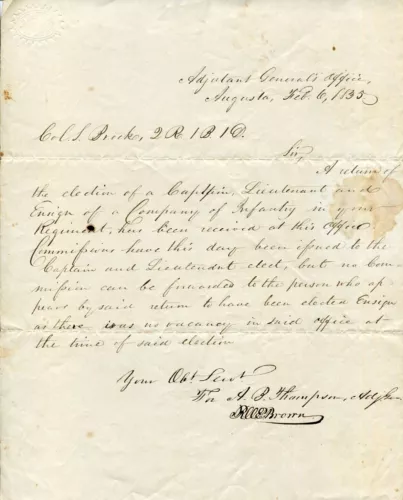 Adjutant General's Office,
Augusta, Feb. 6, 1835
Col. S. Brock, 2 R. 1 B. 1 D.
Sir,
A return of
the election of a Captain, Lieutenant and
Ensign of a Company of Infantry in your
Regiment, has been received at this Office
Commissions have this day been issued to the
Captain and Lieutenant elect, but no Com-
mission can be forwarded to the person who ap
pears by said return to have been elected Ensign
as there was no vacancy in said office at
the time of said election
Your Obt. Servt
For A. B. Thompson, Adj. Gen
Brown